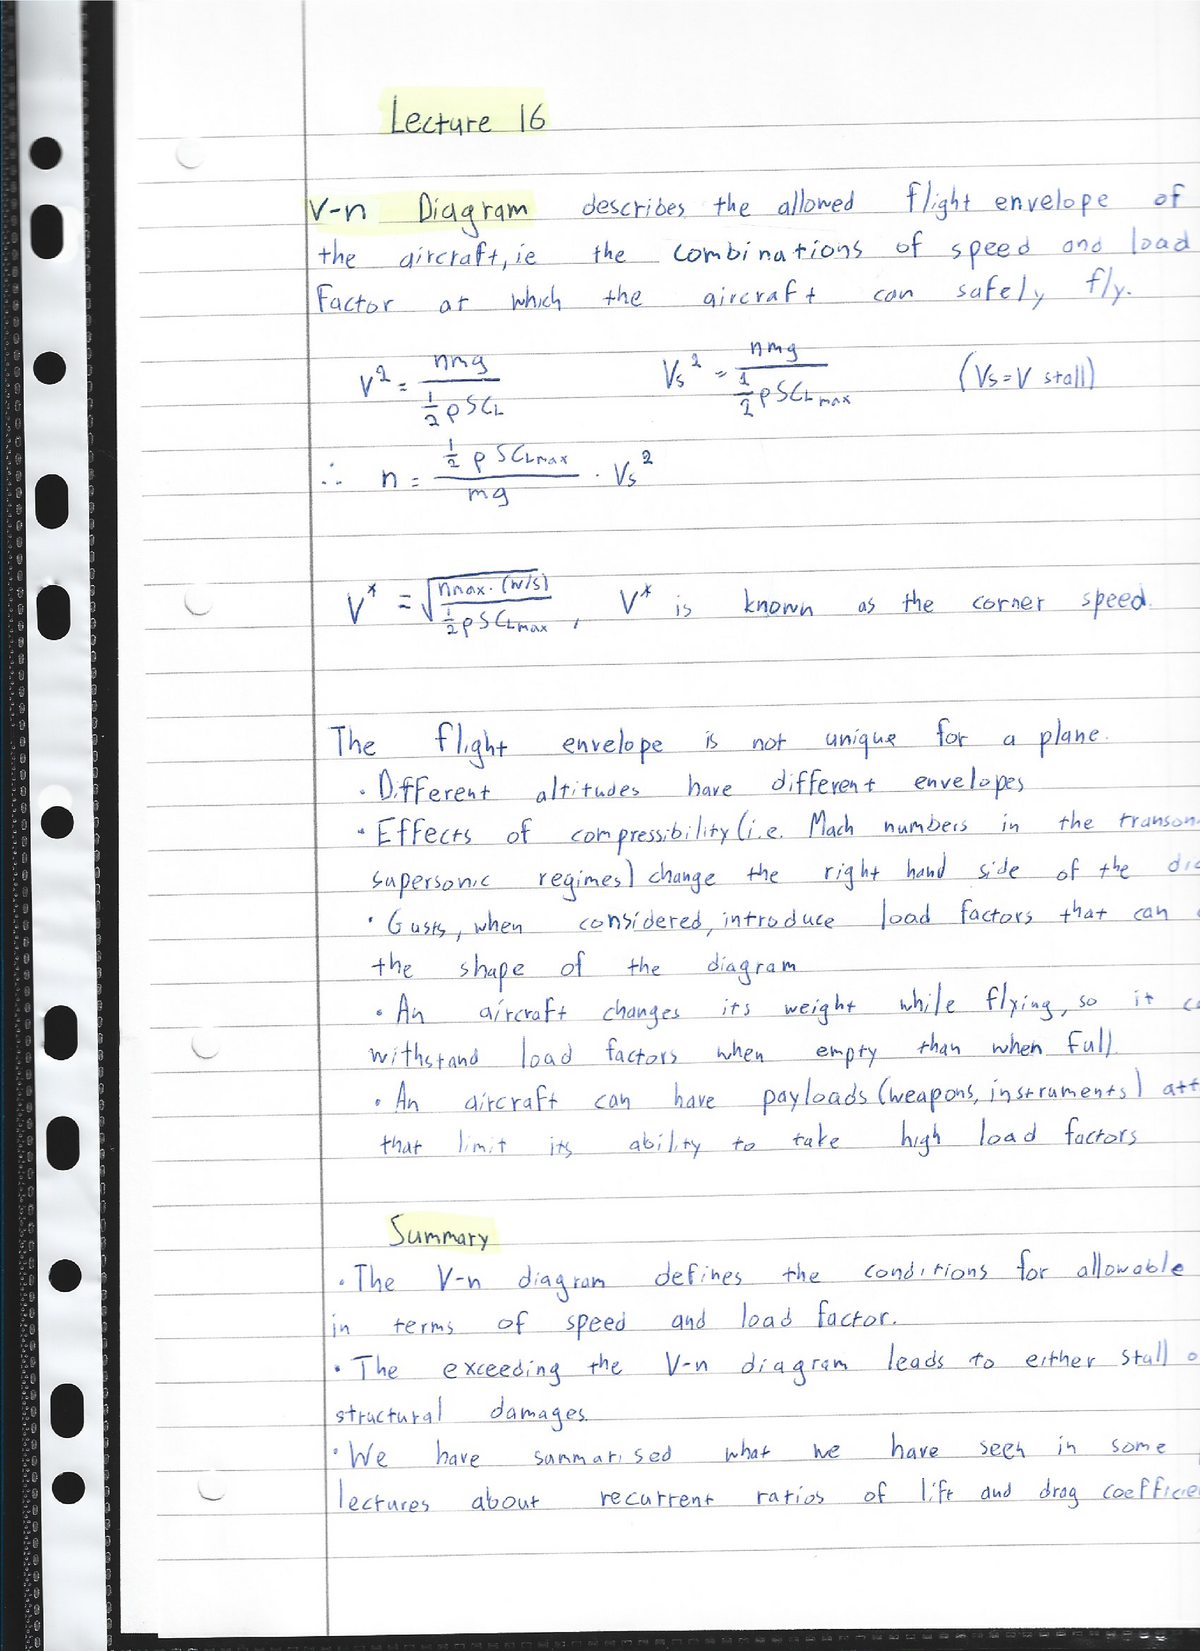 Lecture 16
V-n Diagram describes the allowed flight envelope of
the aircraft, ie the combinations of speed and load
Factor at which the aircraft can safely fly.
V² = nmg / ½ρSCL   Vs² = nmg / ½ρSCLmax   (Vs = V stall)
∴ n = ½ρSCLmax / mg · Vs²
V* = √(nmax·(w/s) / ½ρSCLmax), V* is known as the corner speed.
The flight envelope is not unique for a plane.
· Different altitudes have different envelopes
· Effects of compressibility (i.e. Mach numbers in the transon
supersonic regimes) change the right hand side of the
· Gusts, when considered, introduce load factors that can
the shape of the diagram
· An aircraft changes its weight while flying, so it
withstand load factors when empty than when full.
· An aircraft can have payloads (weapons, instruments) att
that limit its ability to take high load factors
Summary
· The V-n diagram defines the conditions for allowable
in terms of speed and load factor.
· The exceeding the V-n diagram leads to either stall o
structural damages.
· We have summarised what we have seen in some
lectures about recurrent ratios of lift and drag coefficie